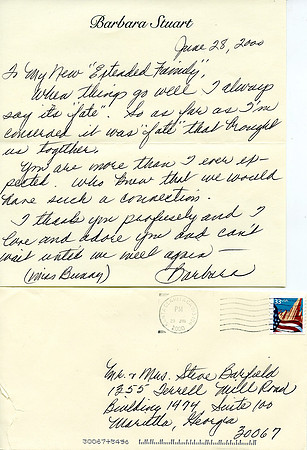 Barbara Stuart
June 28, 2000
To My New "Extended Family",
When things go well I always
say its "fate". So as far as I'm
concerned it was "fate" that brought
us together.
You are more than I ever ex-
pected. Who knew that we would
have such a connection.
I thank you profusely and I
love and adore you and can't
wait until we meet again—
(Miss Bunny) Barbara
PM
2000
33
Mr. & Mrs. Steve Barfield
1255 Terrell Mill Road
Building 1974 Suite 100
Marietta, Georgia
30067
30067+5496